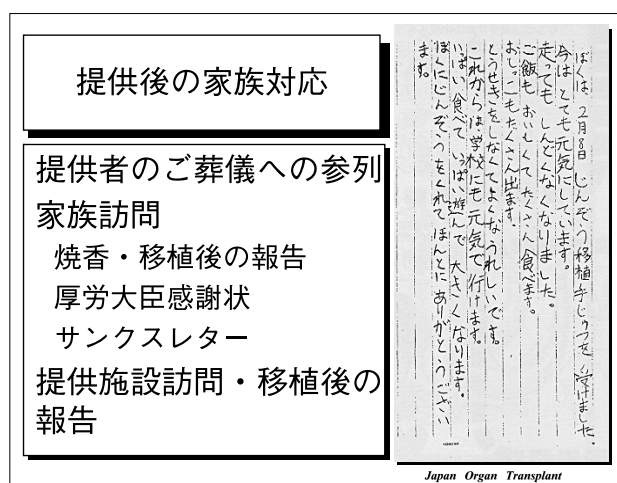 提供後の家族対応
提供者のご葬儀への参列
家族訪問
焼香・移植後の報告
厚労大臣感謝状
サンクスレター
提供施設訪問・移植後の
報告
ぼくは、2月8日 じんぞう移植手じゅつを 受けました。
今は とても元気にしています。
走っても しんどくなくなりました。
ご飯も おいしくて たくさん 食べます。
おしっこもたくさん出ます。
とうせきをしなくてよくなりうれしいです。
これからは 学校にも 元気で 行けます。
いっぱい 食べて いっぱい 遊んで 大きくなります。
ぼくにじんぞうをくれて ほんとにありがとうござい
ます。
Japan Organ Transplant